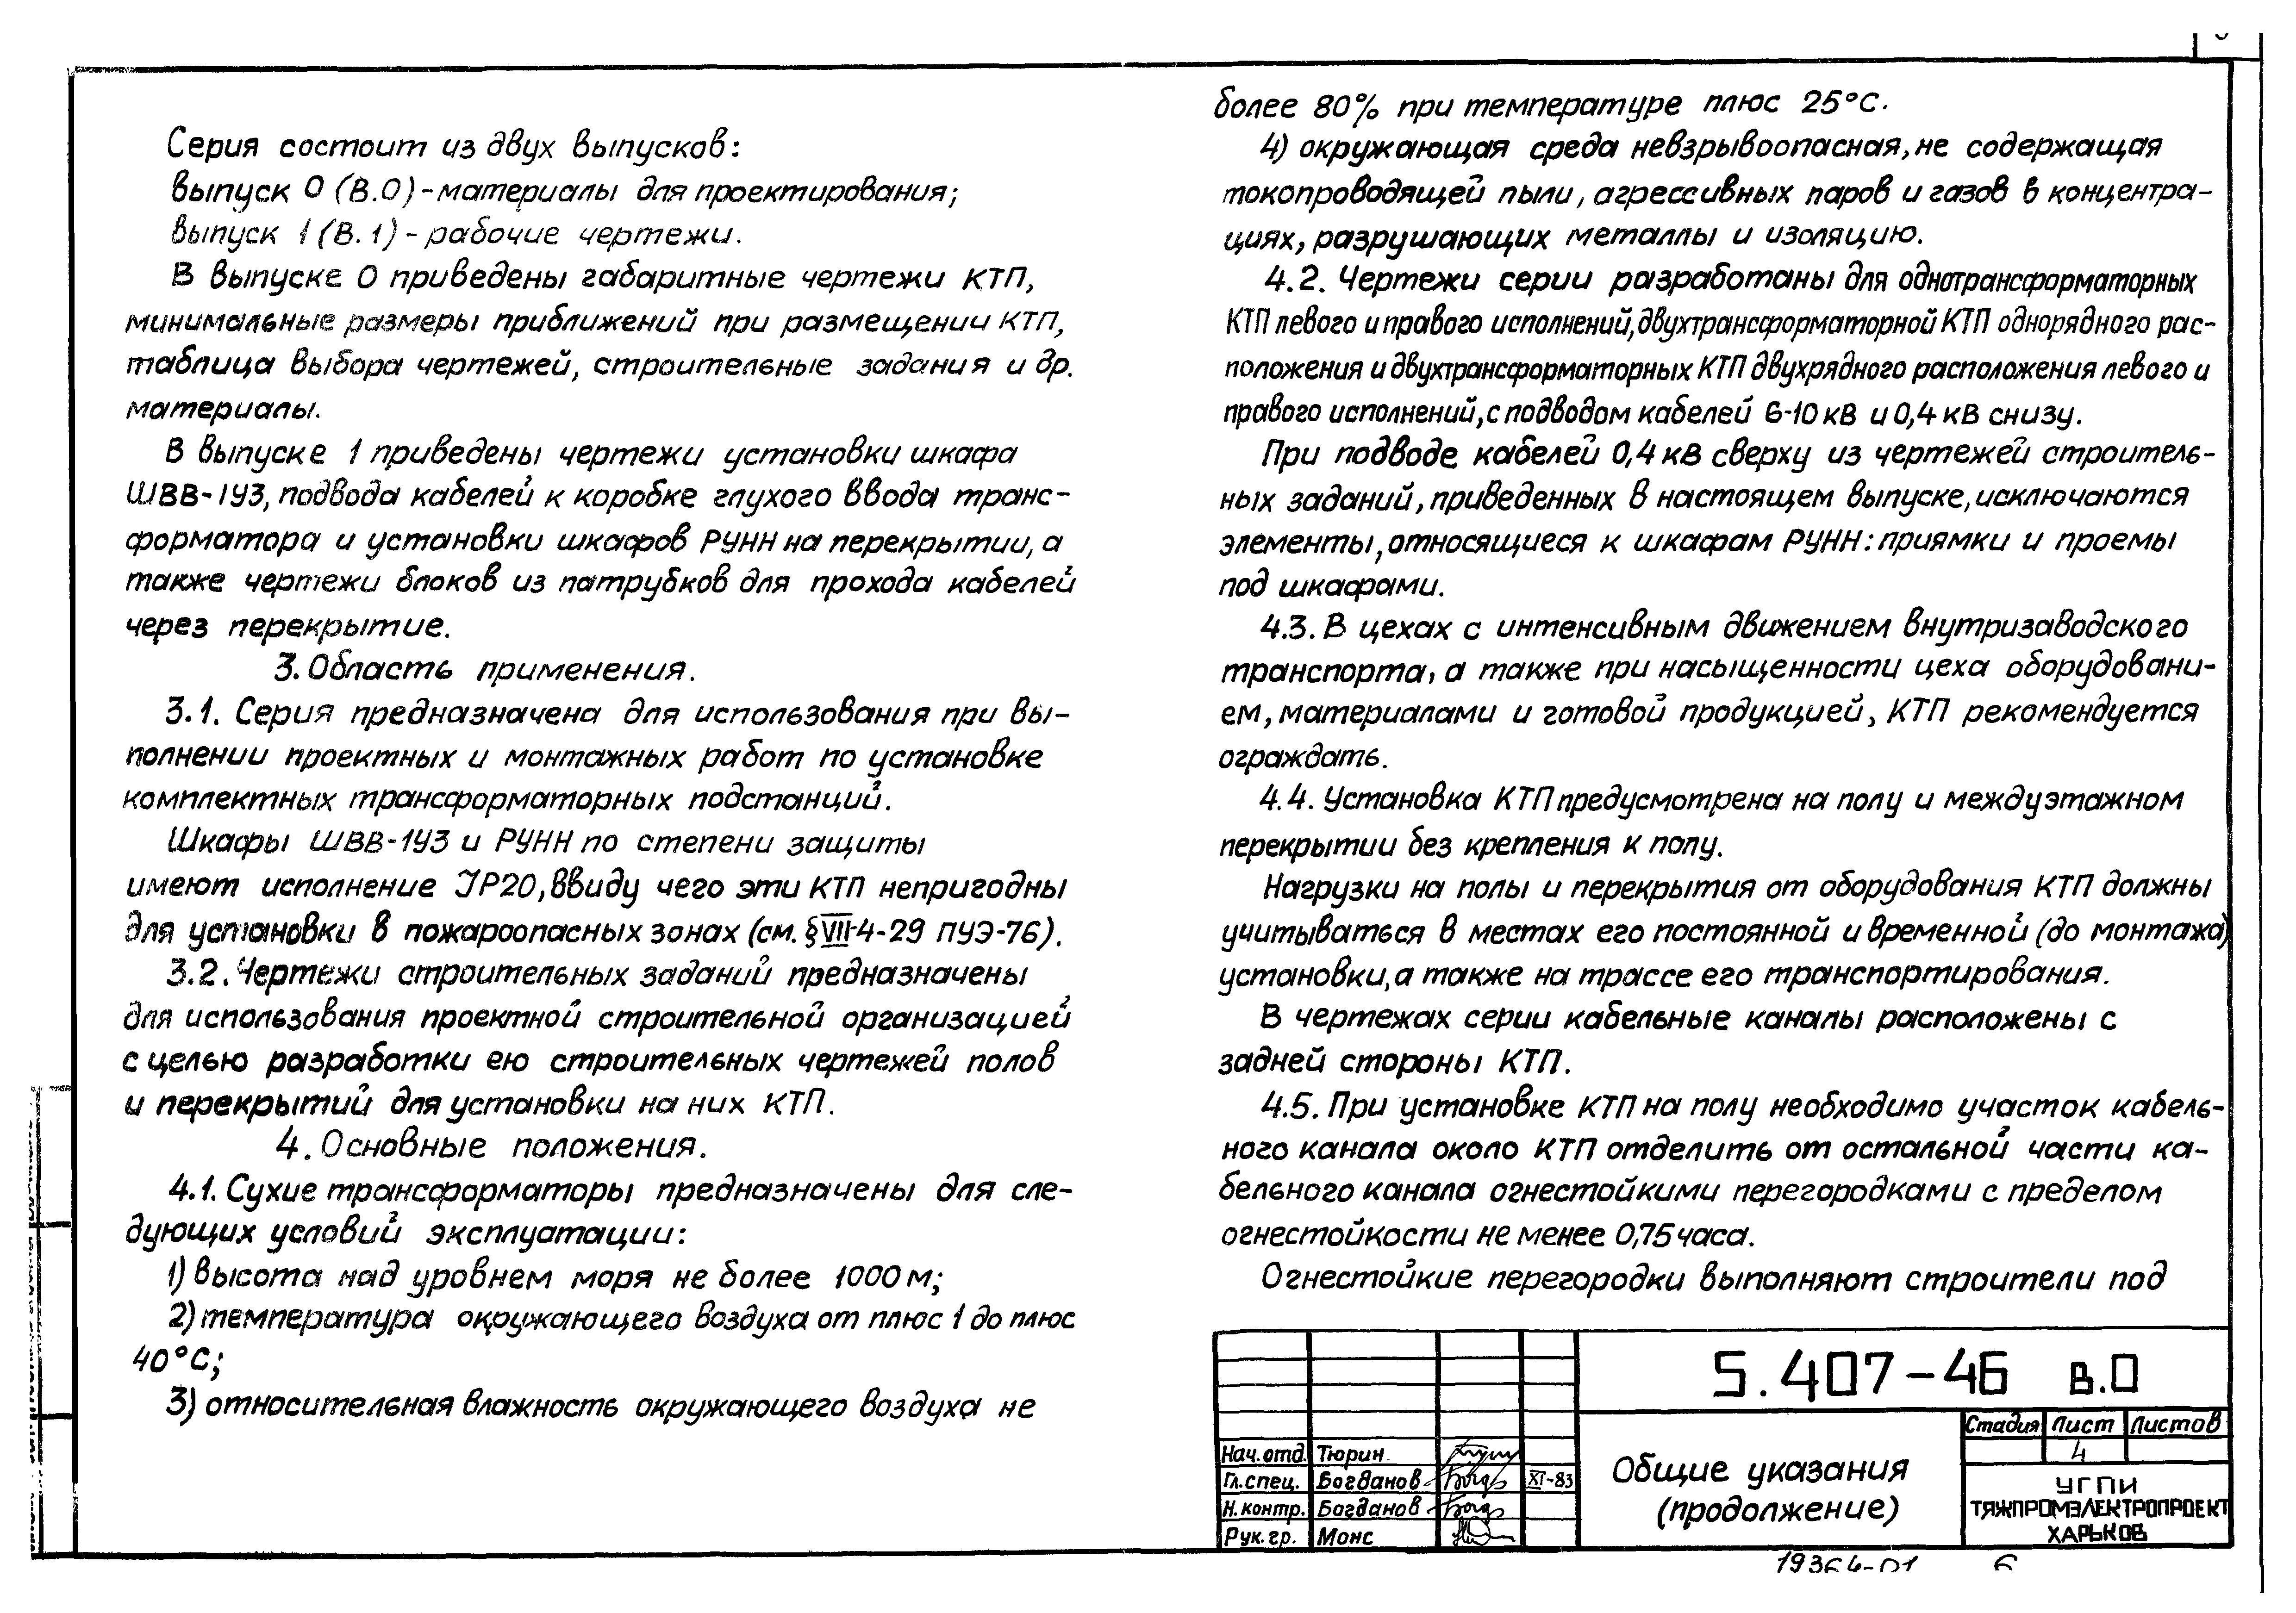 Серия состоит из двух выпусков:
выпуск 0 (В.0) - материалы для проектирования;
выпуск 1 (В.1) - рабочие чертежи.
В выпуске 0 приведены габаритные чертежи КТП,
минимальные размеры приближений при размещении КТП,
таблица выбора чертежей, строительные задания и др.
материалы.
В выпуске 1 приведены чертежи установки шкафа
ШВВ-1У3, подвода кабелей к коробке глухого ввода транс-
форматора и установки шкафов РУНН на перекрытии, а
также чертежи блоков из патрубков для прохода кабелей
через перекрытие.
3. Область применения.
3.1. Серия предназначена для использования при вы-
полнении проектных и монтажных работ по установке
комплектных трансформаторных подстанций.
Шкафы ШВВ-1У3 и РУНН по степени защиты
имеют исполнение IP20, ввиду чего эти КТП непригодны
для установки в пожароопасных зонах (см. § VII-4-29 ПУЭ-76).
3.2. Чертежи строительных заданий предназначены
для использования проектной строительной организацией
с целью разработки ею строительных чертежей полов
и перекрытий для установки на них КТП.
4. Основные положения.
4.1. Сухие трансформаторы предназначены для сле-
дующих условий эксплуатации:
1) высота над уровнем моря не более 1000 м;
2) температура окружающего воздуха от плюс 1 до плюс
40°С;
3) относительная влажность окружающего воздуха не
более 80% при температуре плюс 25°С.
4) окружающая среда невзрывоопасная, не содержащая
токопроводящей пыли, агрессивных паров и газов в концентра-
циях, разрушающих металлы и изоляцию.
4.2. Чертежи серии разработаны для однотрансформаторных
КТП левого и правого исполнений, двухтрансформаторной КТП однорядного рас-
положения и двухтрансформаторных КТП двухрядного расположения левого и
правого исполнений, с подводом кабелей 6-10 кВ и 0,4 кВ снизу.
При подводе кабелей 0,4 кВ сверху из чертежей строитель-
ных заданий, приведенных в настоящем выпуске, исключаются
элементы, относящиеся к шкафам РУНН: приямки и проемы
под шкафами.
4.3. В цехах с интенсивным движением внутризаводского
транспорта, а также при насыщенности цеха оборудовани-
ем, материалами и готовой продукцией, КТП рекомендуется
ограждать.
4.4. Установка КТП предусмотрена на полу и междуэтажном
перекрытии без крепления к полу.
Нагрузки на полы и перекрытия от оборудования КТП должны
учитываться в местах его постоянной и временной (до монтажа)
установки, а также на трассе его транспортирования.
В чертежах серии кабельные каналы расположены с
задней стороны КТП.
4.5. При установке КТП на полу необходимо участок кабель-
ного канала около КТП отделить от остальной части ка-
бельного канала огнестойкими перегородками с пределом
огнестойкости не менее 0,75 часа.
Огнестойкие перегородки выполняют строители под
5.407-46 В.0
Стадия Лист Листов
4
Нач. отд. Тюрин
Гл. спец. Богданов XI-83
Н. контр. Богданов
Рук. гр. Монс
Общие указания
(продолжение)
УГПИ
ТЯЖПРОМЭЛЕКТРОПРОЕКТ
ХАРЬКОВ
19364-01 6